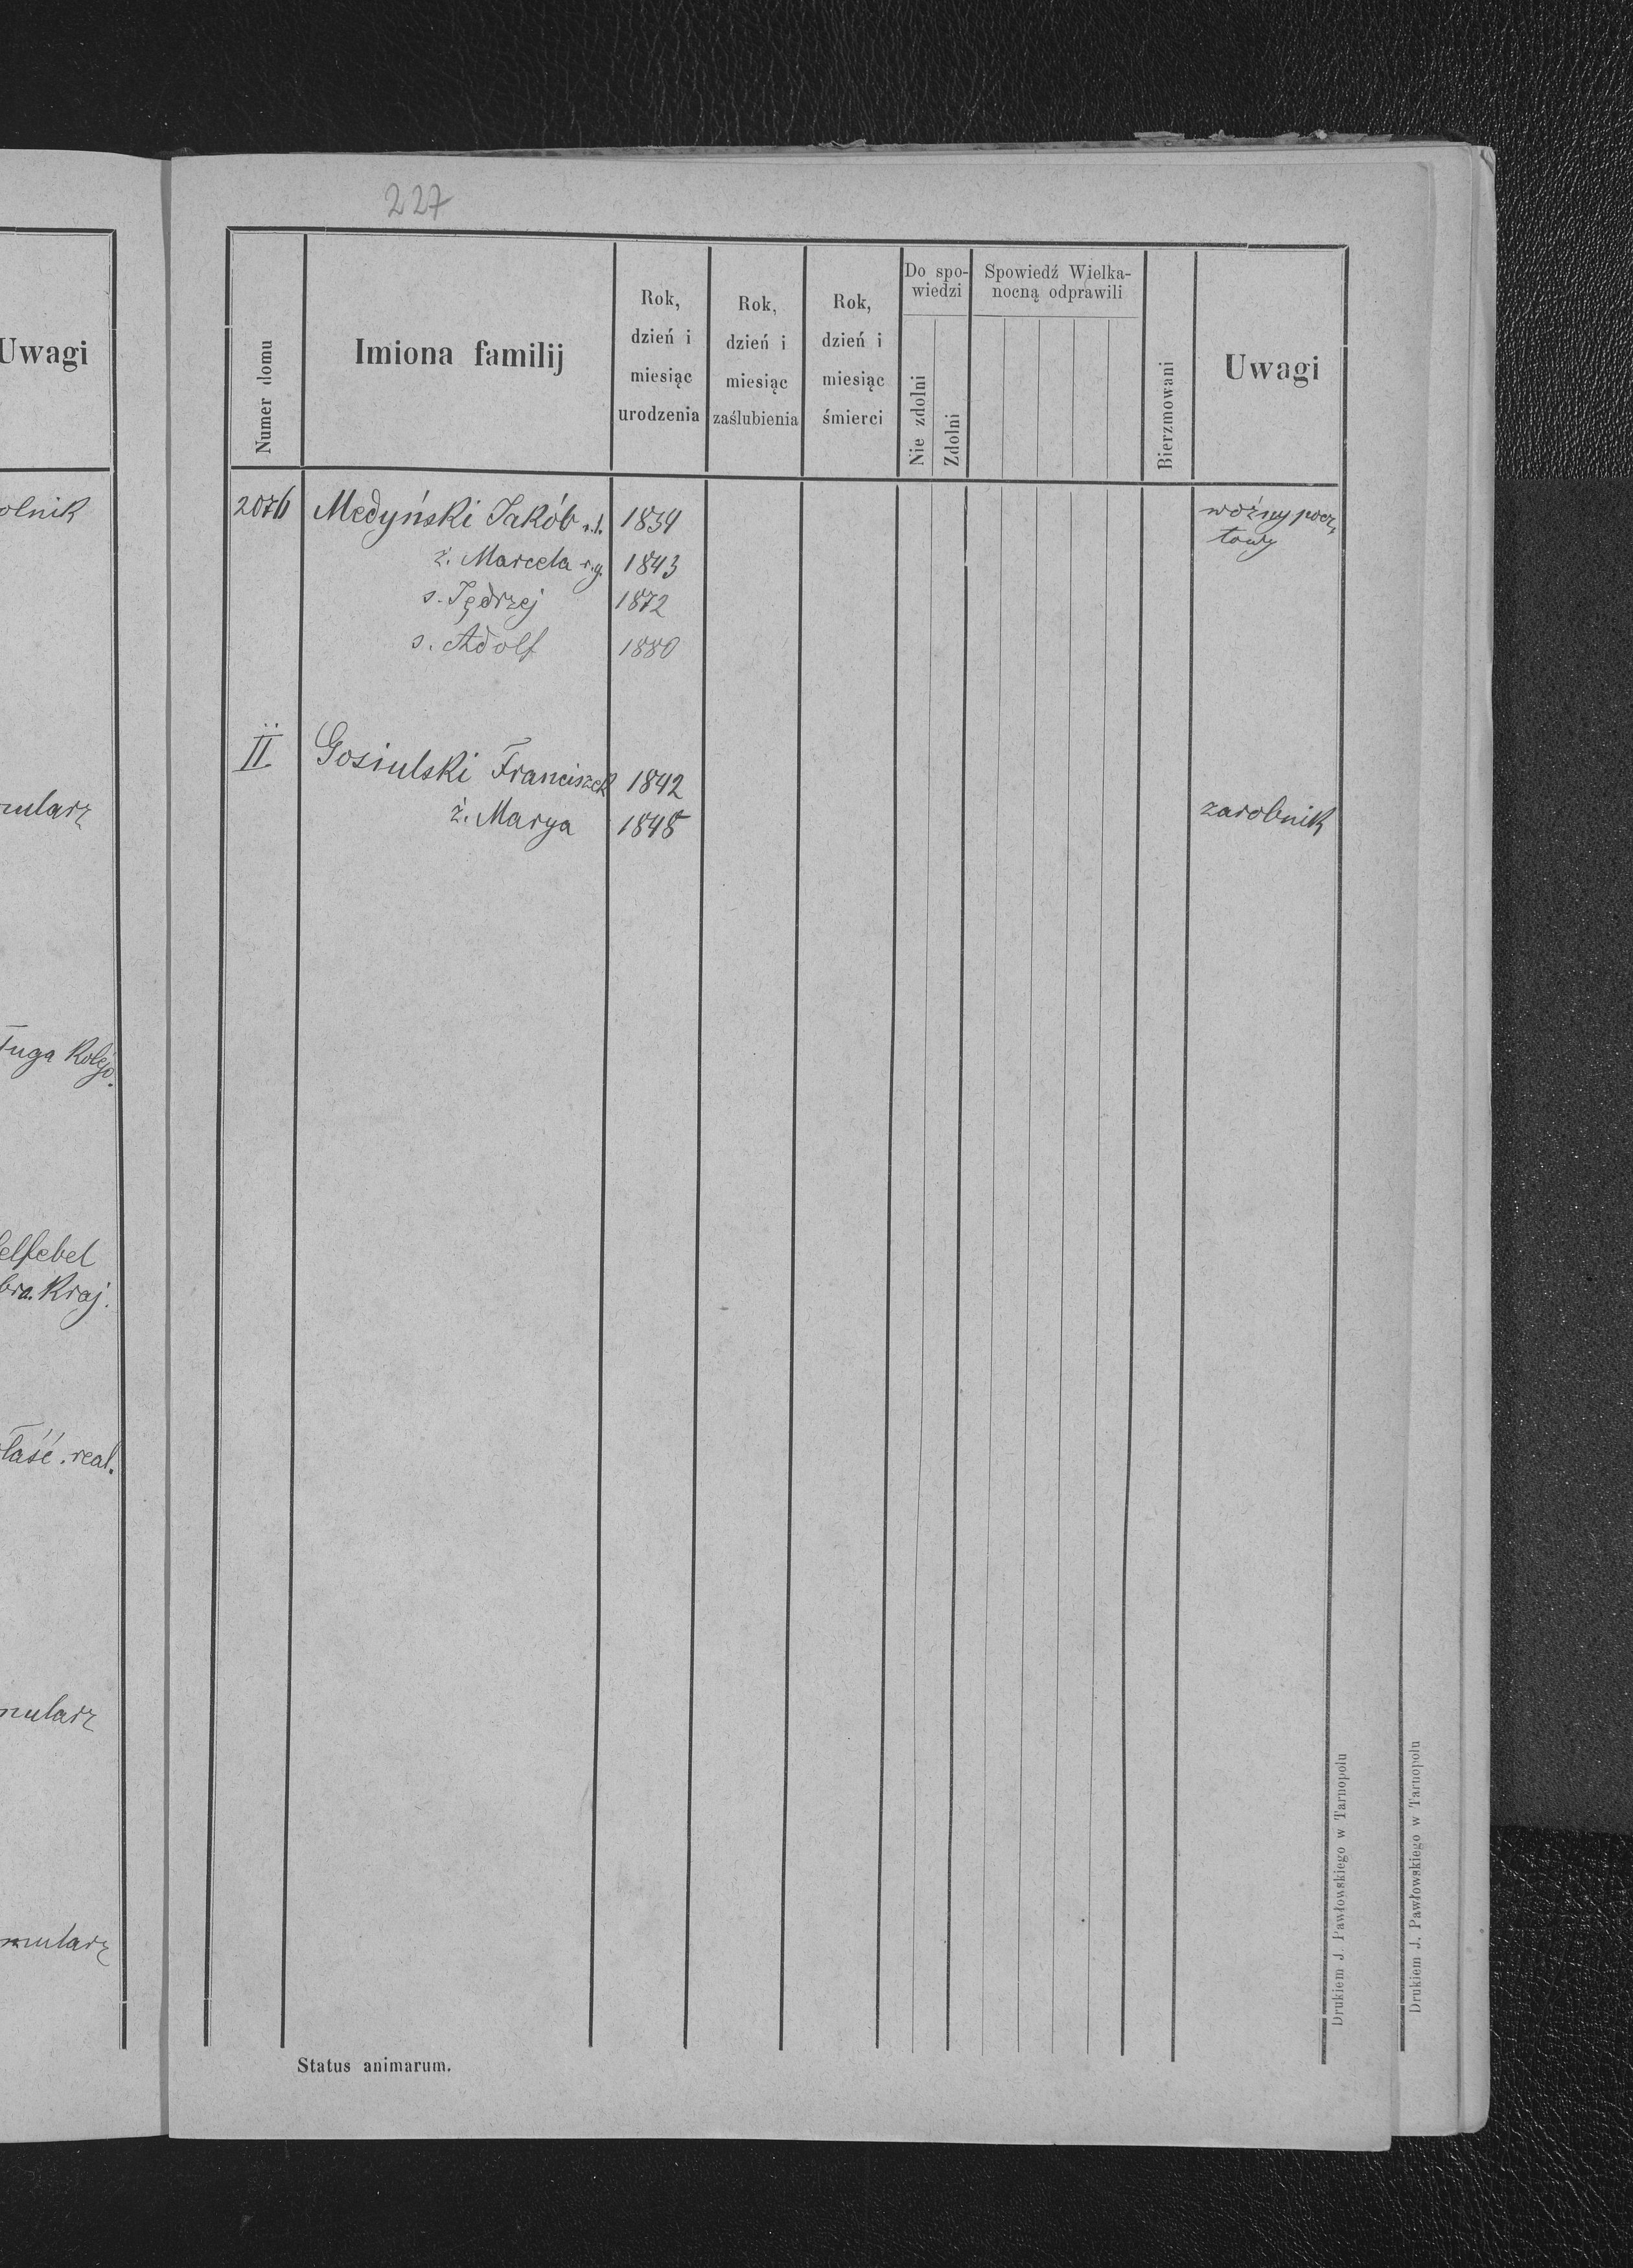 227
Uwagi
Numer domu
Imiona familij
Rok,
dzień i
miesiąc
urodzenia
Rok,
dzień i
miesiąc
zaślubienia
Rok,
dzień i
miesiąc
śmierci
Do spo-
wiedzi
Nie zdolni
Zdolni
Spowiedź Wielka-
nocną odprawili
Bierzmowani
Uwagi
2076 Medyński Jakób r.l. 1834 woźny pocz
towy
ż. Marcela r.g. 1843
s. Jędrzej 1872
s. Adolf 1880
II Gosiulski Franciszek 1842
ż. Marya 1848 zarobnik
olnik
mularz
ługa Kolejo.
elfebel
bra. Kraj.
łaść. real.
mularz
mularz
Status animarum.
Drukiem J. Pawłowskiego w Tarnopolu
Drukiem J. Pawłowskiego w Tarnopolu